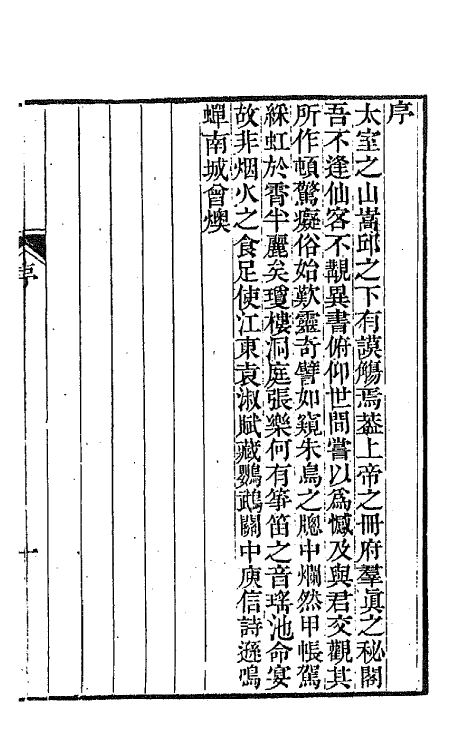 序
太室之山嵩邱之下有謨觴焉葢上帝之冊府羣眞之秘閣
吾不逢仙客不覩異書俯仰世間嘗以爲憾及與君交觀其
所作頓驚癡俗始歎靈奇譬如窺朱鳥之牎中爛然甲帳駕
綵虹於霄半麗矣瓊樓洞庭張樂何有箏笛之音瑤池命宴
故非烟火之食足使江東袁淑賦藏鸚鵡關中庾信詩遜鳴
蟬南城曾燠
序
一